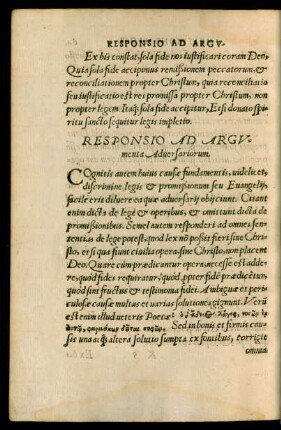 RESPONSIO AD ARGV-
Ex his constat, sola fide nos iustificari coram Deo,
Quia sola fide accipimus remissionem peccatorum, &
reconciliationem propter Christum, quia reconciliatio
seu iustificatio est res promissa propter Christum, non
propter legem. Itaq; sola fide accipitur, Etsi donato spi-
ritu sancto sequitur legis impletio.
RESPONSIO AD ARGV-
menta Aduersariorum.
COgnitis autem huius causæ fundamentis, uidelicet,
discrimine, legis & promissionum seu Euangelij,
facile erit diluere ea quæ aduersarij obijciunt. Citant
enim dicta de lege & operibus, & omittunt dicta de
promissionibus. Semel autem responderi ad omnes sen-
tentias de lege potest, quod lex nō possit fieri sine Chri-
sto, et si qua fiunt ciuilia opera, sine Christo, non placent
Deo. Quare cùm prædicantur opera, necesse est adde-
re, quòd fides requiratur, quòd ppter fidē prædicētur,
quòd sint fructus & testimonia fidei. Ambiguæ et peri-
culosæ causæ multas et varias solutiones gignunt. Verū
est enim illud ueteris Poetæ
Sed in bonis et firmis cau-
sis una atq; altera solutio sumpta ex fontibus, corrigit
omnia